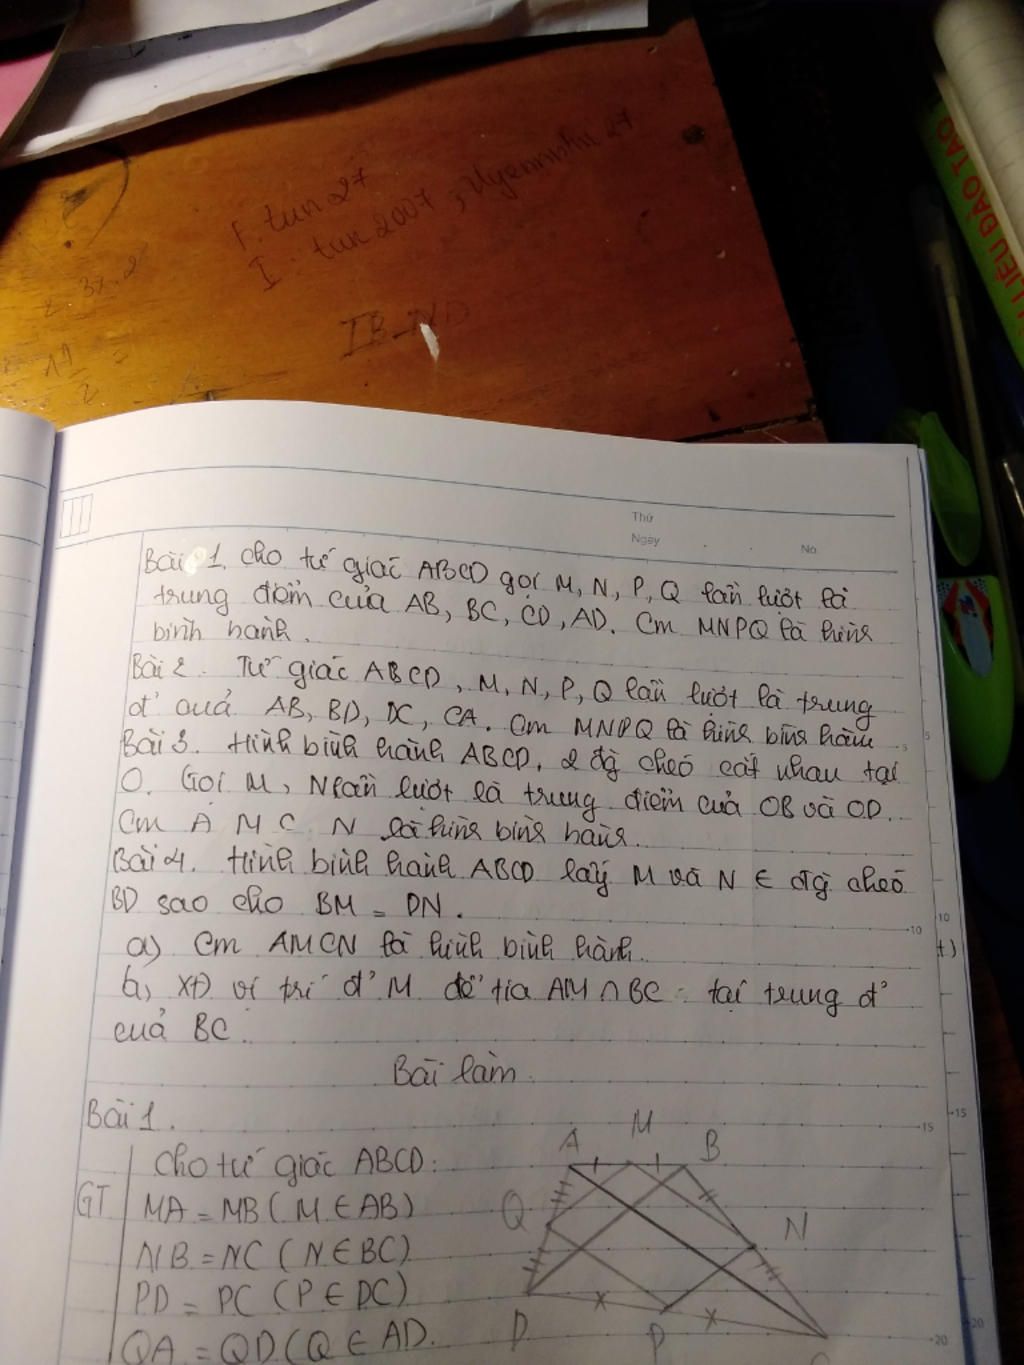 F. tun 27
I: tun 2007, Uyennnhi 27
3x.2
IB_ND
LIỆU ĐÀO TẠO
Thứ
Ngày
No
Bài 1. Cho tứ giác ABCD gọi M, N, P, Q lần lượt là
trung điểm của AB, BC, CD, AD. Cm MNPQ là hình
bình hành.
Bài 2. Tứ giác ABCD, M, N, P, Q lần lượt là trung
đ' quả AB, BD, DC, CA. Cm MNPQ là hình bình hành.
Bài 3. Hình bình hành ABCD, 2 đg chéo cắt nhau tại
O. Gọi M, N lần lượt là trung điểm của OB và OD.
Cm A M C N là hình bình hành.
Bài 4. Hình bình hành ABCD lấy M và N ∈ đg chéo
BD sao cho BM = DN.
a) Cm AMCN là hình bình hành.
b, XĐ ví trí đ' M để tia AM ∩ BC tại trung đ'
của BC.
Bài làm
Bài 1.
Cho tứ giác ABCD:
GT MA = MB (M ∈ AB)
NB = NC (N ∈ BC)
PD = PC (P ∈ DC)
QA = QD (Q ∈ AD.
A M B
Q N
D P
5
10
10
t)
15
15
20
20